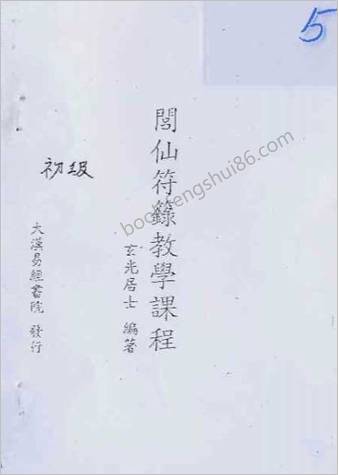 5
閭仙符籙教學課程
玄光居士 編著
初级
大漢易經書院 發行
book.fengshui86.com